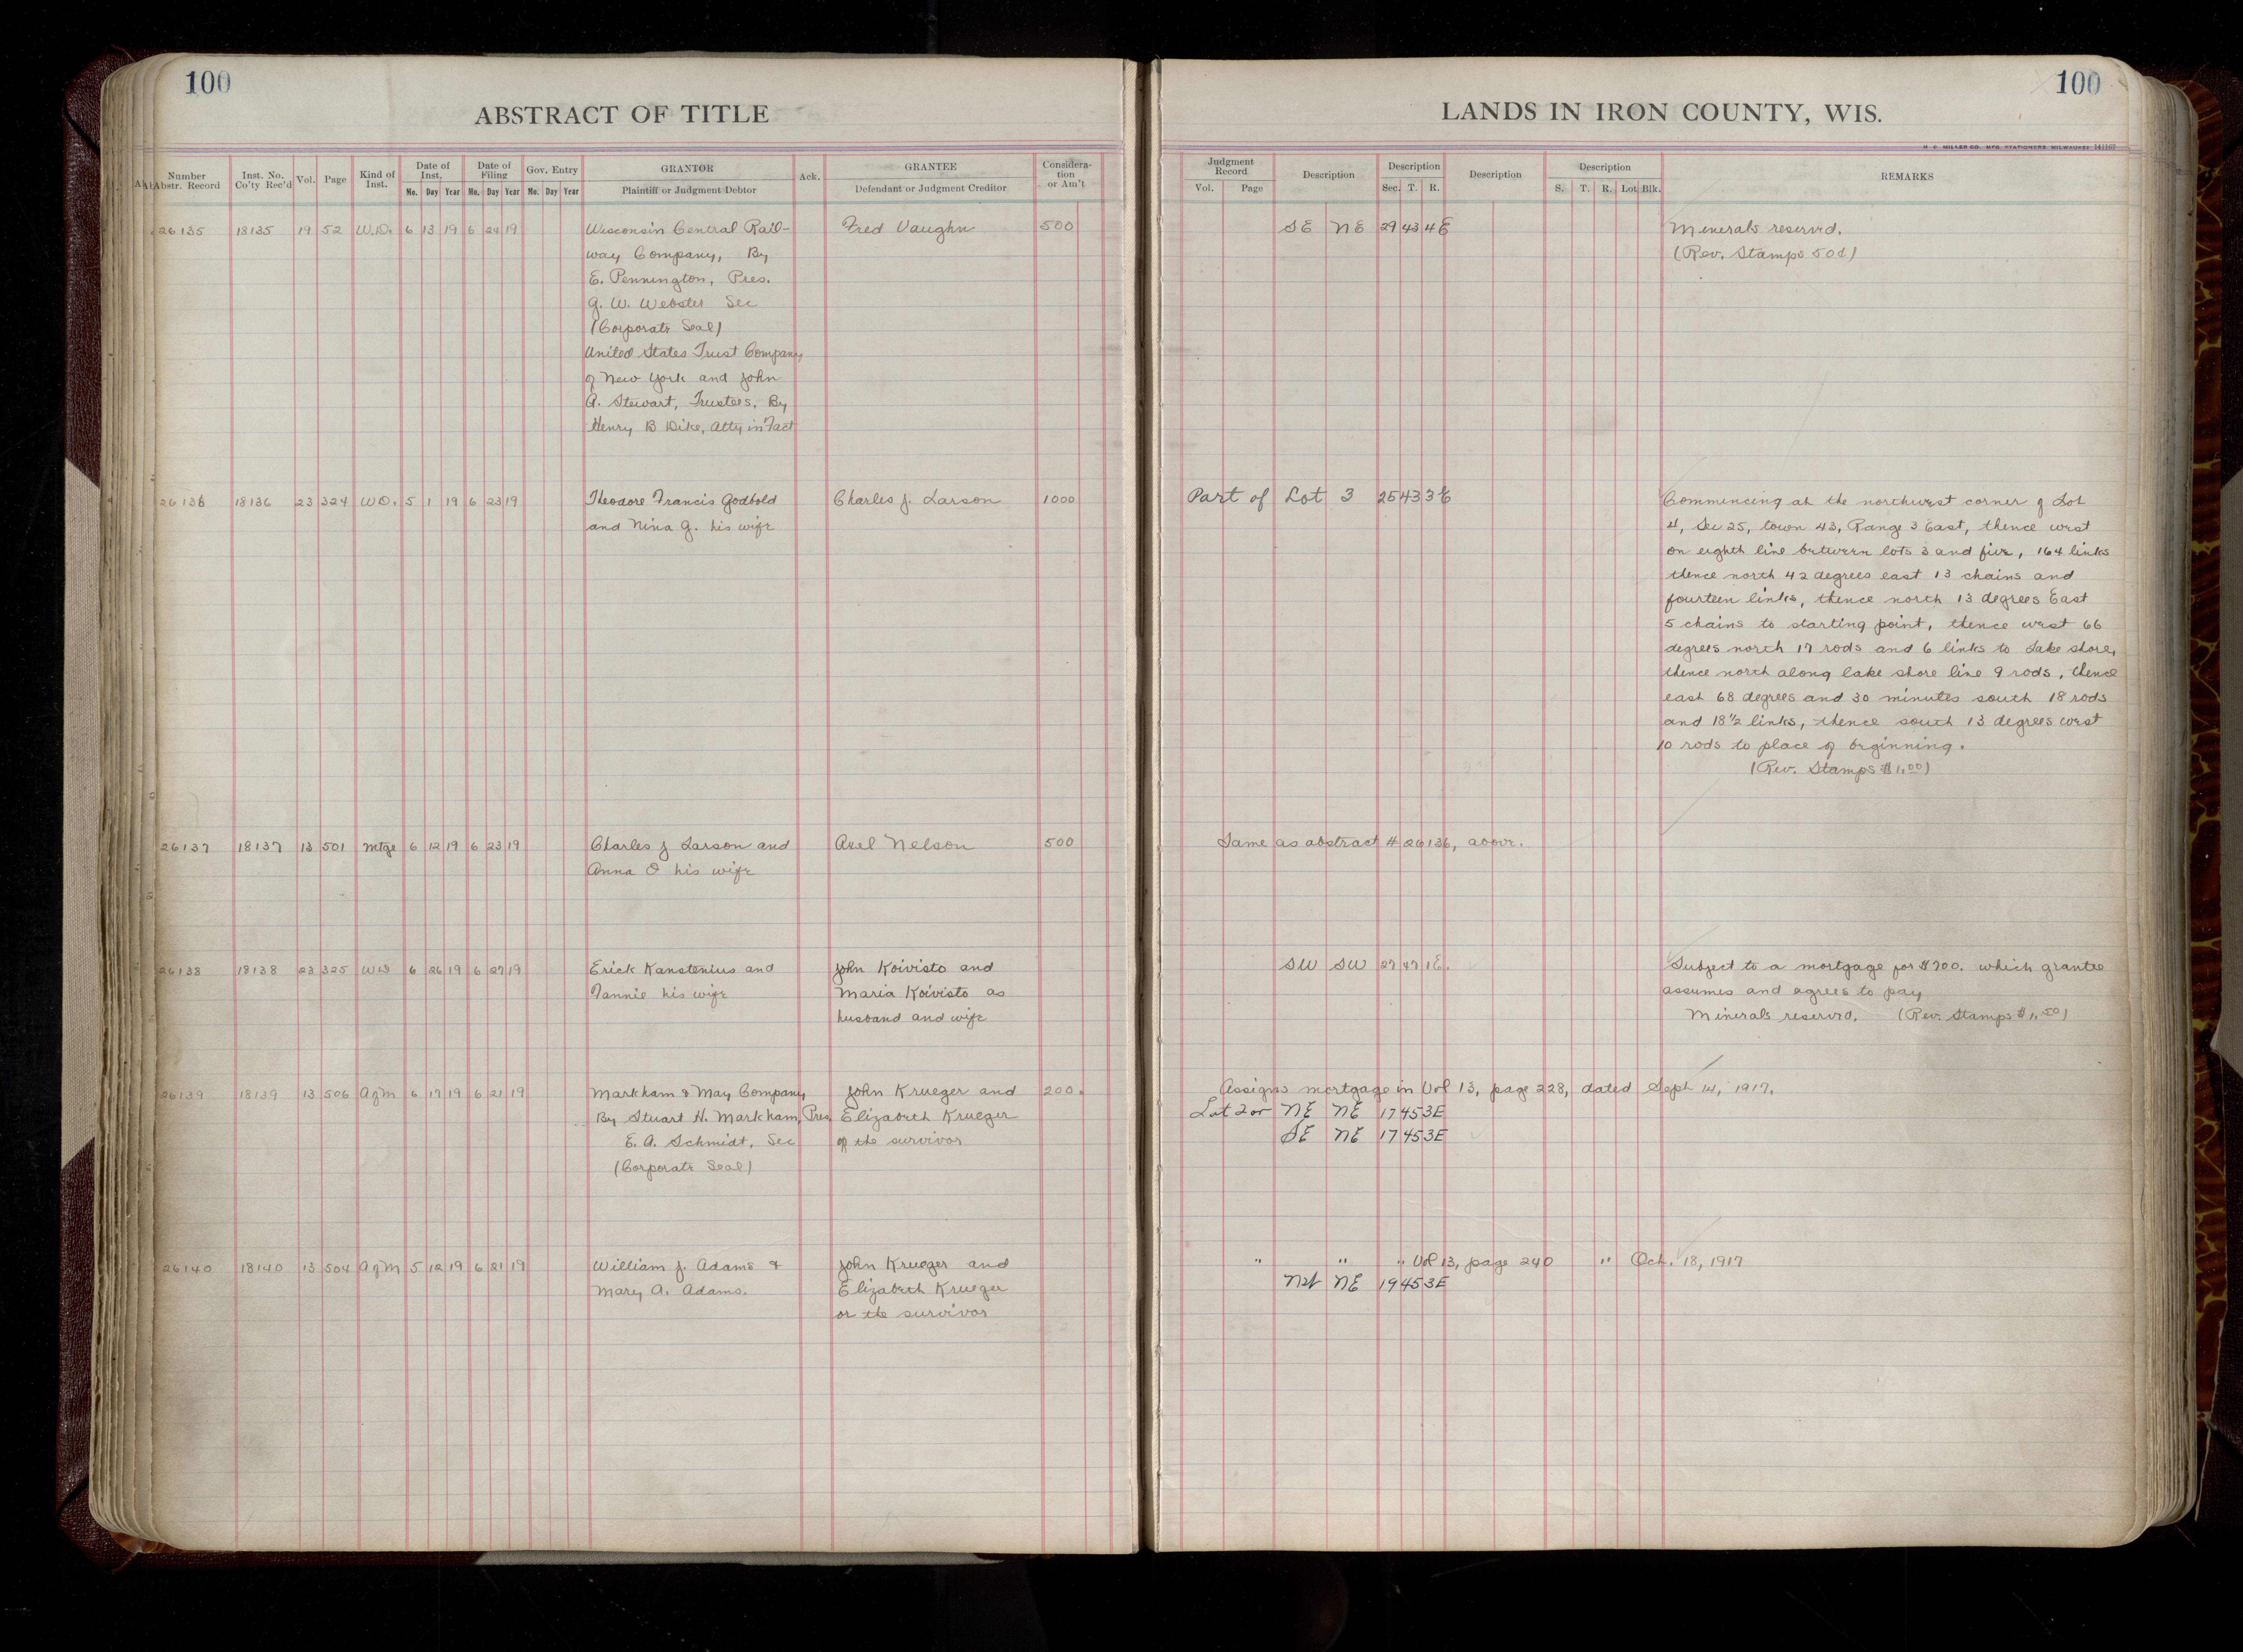 100
ABSTRACT OF TITLE
Number Abstr. Record Inst. No. Co'ty Rec'd Vol. Page Kind of Inst. Date of Inst. Mo. Day Year Date of Filing Mo. Day Year Gov. Entry Mo. Day Year GRANTOR Plaintiff or Judgment Debtor Ack. GRANTEE Defendant or Judgment Creditor Considera-tion or Am't
26135 18135 19 52 W.D. 6 13 19 6 24 19 Wisconsin Central Rail- Fred Vaughn 500
way Company, By
E. Pennington, Pres.
G. W. Webster Sec
(Corporate Seal)
United States Trust Company
of New York and John
A. Stewart, Trustees, By
Henry B Dike, Atty in Fact
26136 18136 23 324 WD. 5 1 19 6 23 19 Theodore Francis Godbold Charles J. Larson 1000
and Nina G. his wife
26137 18137 13 501 Mtge 6 12 19 6 23 19 Charles J Larson and Axel Nelson 500
Anna O his wife
26138 18138 23 325 WD 6 26 19 6 27 19 Erick Kanstenius and John Koivisto and
Fannie his wife Maria Koivisto as
husband and wife
26139 18139 13 506 AgM 6 17 19 6 21 19 Markham & May Company John Krueger and 200.
By Stuart H. Markham, Pres. Elizabeth Krueger
E. A. Schmidt, Sec or the survivor
(Corporate Seal)
26140 18140 13 504 AgM 5 12 19 6 21 19 William J. Adams & John Krueger and
Mary A. Adams. Elizabeth Krueger
or the survivor
100
LANDS IN IRON COUNTY, WIS.
H. C. MILLER CO. MFG. STATIONERS, MILWAUKEE 141167
Judgment Record Vol. Page Description Description Sec. T. R. Description Description S. T. R. Lot Blk. REMARKS
SE NE 29 43 4E Minerals reserved.
(Rev. Stamps 50¢)
Part of Lot 3 25 43 3E Commencing at the northwest corner of Lot
4, Sec 25, town 43, Range 3 East, thence west
on eighth line between lots 3 and five, 164 links
thence north 42 degrees east 13 chains and
fourteen links, thence north 13 degrees East
5 chains to starting point, thence west 66
degrees north 17 rods and 6 links to Lake shore,
thence north along lake shore line 9 rods, thence
east 68 degrees and 30 minutes south 18 rods
and 18 1/2 links, thence south 13 degrees west
10 rods to place of beginning.
(Rev. Stamps $1.00)
Same as abstract # 26136, above.
SW SW 27 47 1E. Subject to a mortgage for $700. which grantee
assumes and agrees to pay
Minerals reserved. (Rev. Stamps $1.50)
Assigns mortgage in Vol 13, page 228, dated Sept 14, 1917.
Lot 2 or NE NE 17 45 3E
SE NE 17 45 3E
" " " Vol 13, page 240 " Oct. 18, 1917
NW NE 19 45 3E